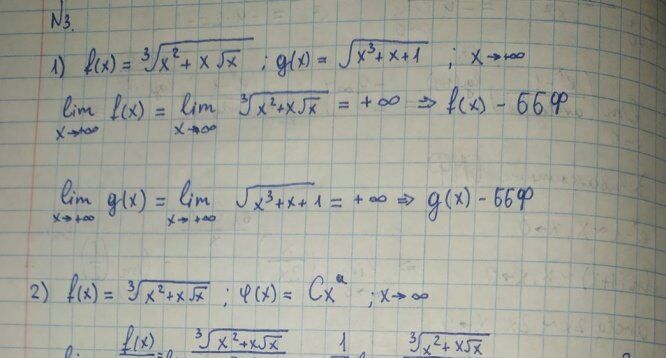 №3.
1) f(x) = ∛(x² + x√x) ; g(x) = √(x³ + x + 1) ; x→+∞
lim x→+∞ f(x) = lim x→∞ ∛(x² + x√x) = +∞ ⇒ f(x) - ББФ
lim x→+∞ g(x) = lim x→+∞ √(x³ + x + 1) = +∞ ⇒ g(x) - ББФ
2) f(x) = ∛(x² + x√x) ; φ(x) = Cxᵃ ; x→∞
f(x) ∛(x² + x√x) 1 ∛(x² + x√x)